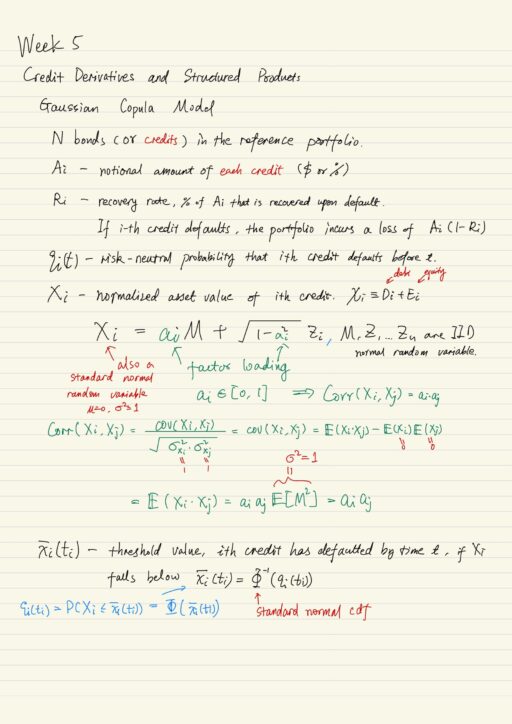 Week 5
Credit Derivatives and Structured Products
Gaussian Copula Model
N bonds (or credits) in the reference portfolio.
Ai – notional amount of each credit ($ or %)
Ri – recovery rate, % of Ai that is recovered upon default.
If i-th credit defaults, the portfolio incurs a loss of Ai(1-Ri)
qi(t) – risk-neutral probability that ith credit defaults before t.
debt equity
Xi – normalized asset value of ith credit. Xi ≡ Di+Ei
Xi = ai M + √(1-ai²) Zi, M, Z, ... Zn are IID
normal random variable.
also a standard normal random variable μ=0, σ²=1
factor loading
ai ∈ [0, 1] ⟹ Corr(Xi, Xj) = ai·aj
Corr(Xi, Xj) = cov(Xi, Xj) / √(σ²Xi · σ²Xj) = cov(Xi, Xj) = E(Xi·Xj) – E(Xi) E(Xj)
1 1 0 0
σ²=1
= E(Xi·Xj) = ai aj E[M²] = ai aj
x̄i(ti) – threshold value, ith credit has defaulted by time t, if Xi
falls below x̄i(ti) = Φ⁻¹(qi(ti))
qi(ti) = P(Xi ≤ x̄i(ti)) = Φ(x̄i(ti))
standard normal cdf